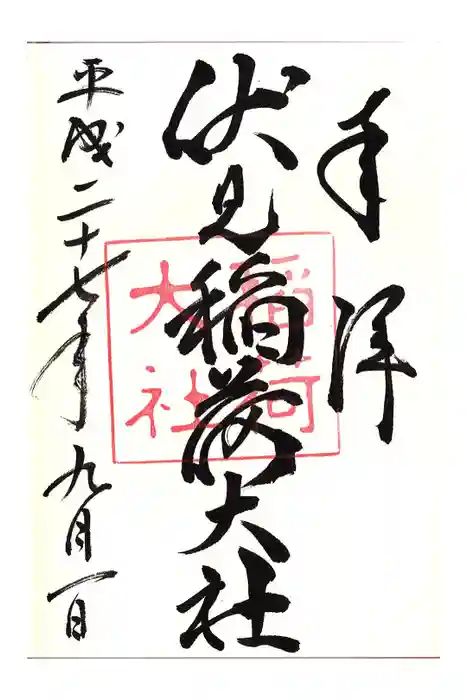 奉拝
伏見稲荷大社
稲荷
大社
平成二十七年九月一日